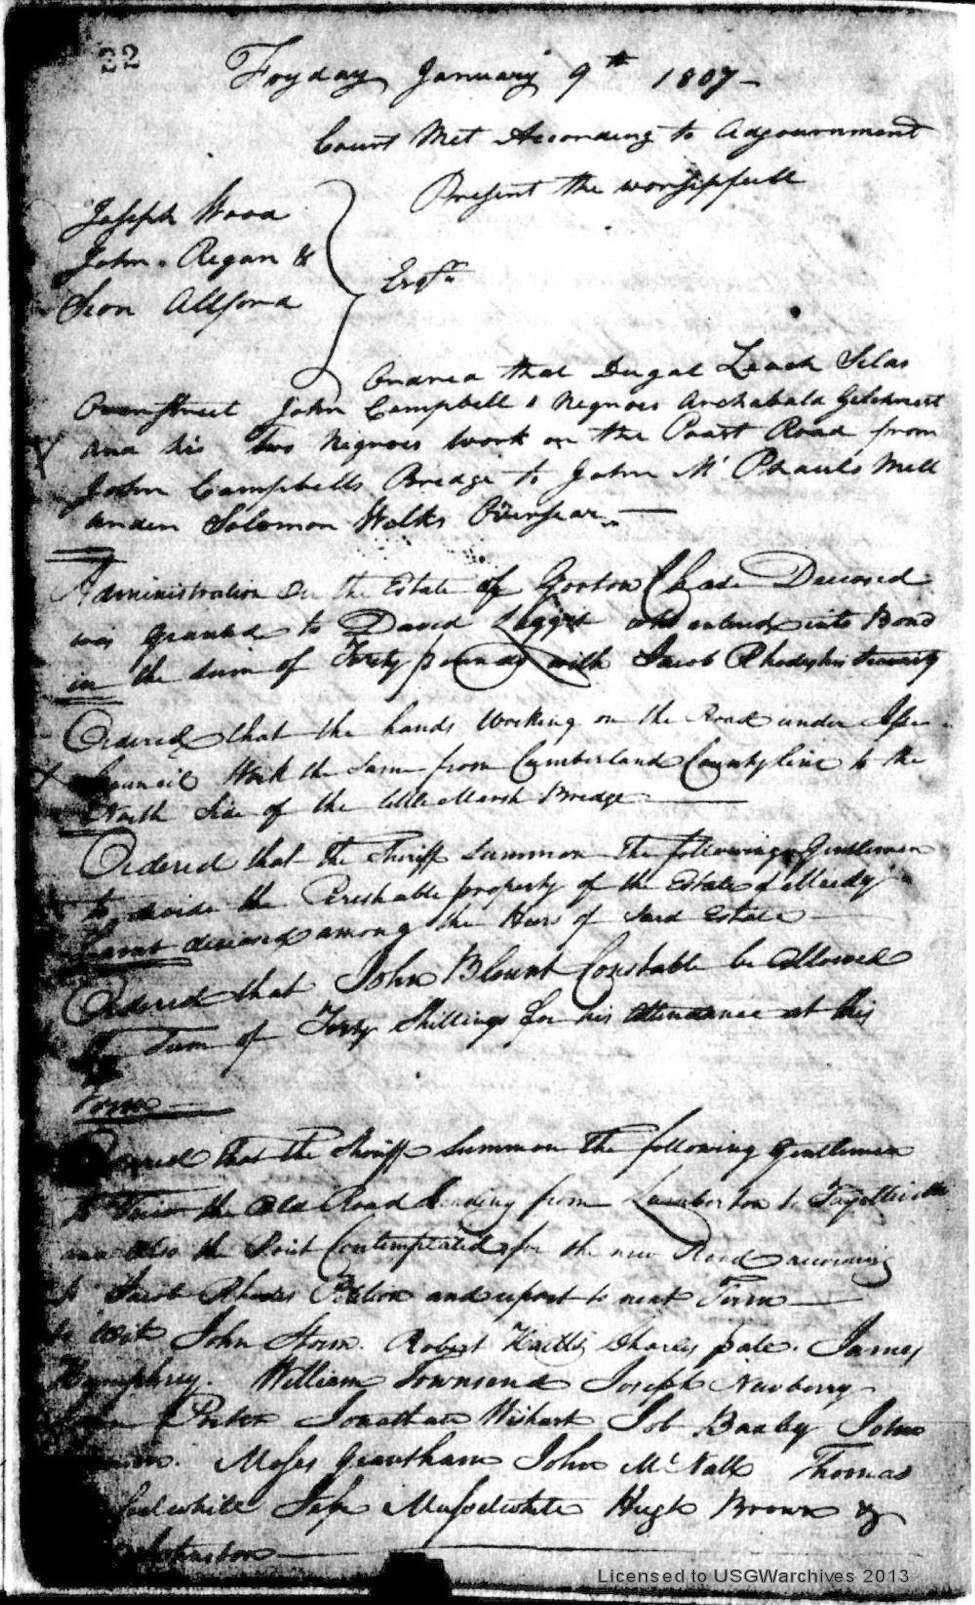 22
Fryday January 9th 1807 -
Court Met According to Adjournment
Present the worsipfull
Joseph Wood
John Regan &
Sion Allford
Esqrs
Ordred that Dugal Leach Silas
Overstreet John Campbell Negroes Archabald Gilchrest
and his Two Negroes work on the Road from
John Campbells Bredge to John Mc Phauls Mill
under Solomon Wolks Overseear. -
Administration on the Estate of Chade Deceased
was granted to David Leggit who entered into Bond
in the sum of pounds with Jacob Rhodes his security
Ordered that the hands Working on the Road under
Council Work the same from Cumberland County line to the
North Side of the little Marsh Bredge -
Ordered that the Sheriff Summon the following Gentlemen
to devide the Perishable property of the Estate of
deceased among the Heirs of said Estate -
Ordered that John Blount Constable be Allowed
the Sum of Forty Shillings for his Attendance at this
Term -
Ordered that the Sheriff Summon the following Gentlemen
to the Old Road leading from Lumberton to Fayetteville
and also the Contemplated for the new Road according
to Jacob Rhodes Petition and report to next Term -
to wit John Robert Charles pate. James
Humphrey. William Townsend Joseph Newberry
Jonathan Wishart Job Baxley John
Moses Grantham John Mc Nall Thomas
Musselwhite Hugh Brown &
Johnston -
Licensed to USGWarchives 2013